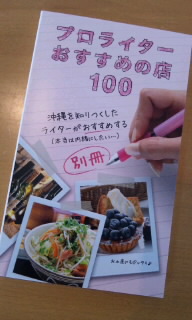 プロライター
おすすめの店
100
沖縄を知りつくした
ライターがおすすめする
(本当は内緒にしたい…)
別冊